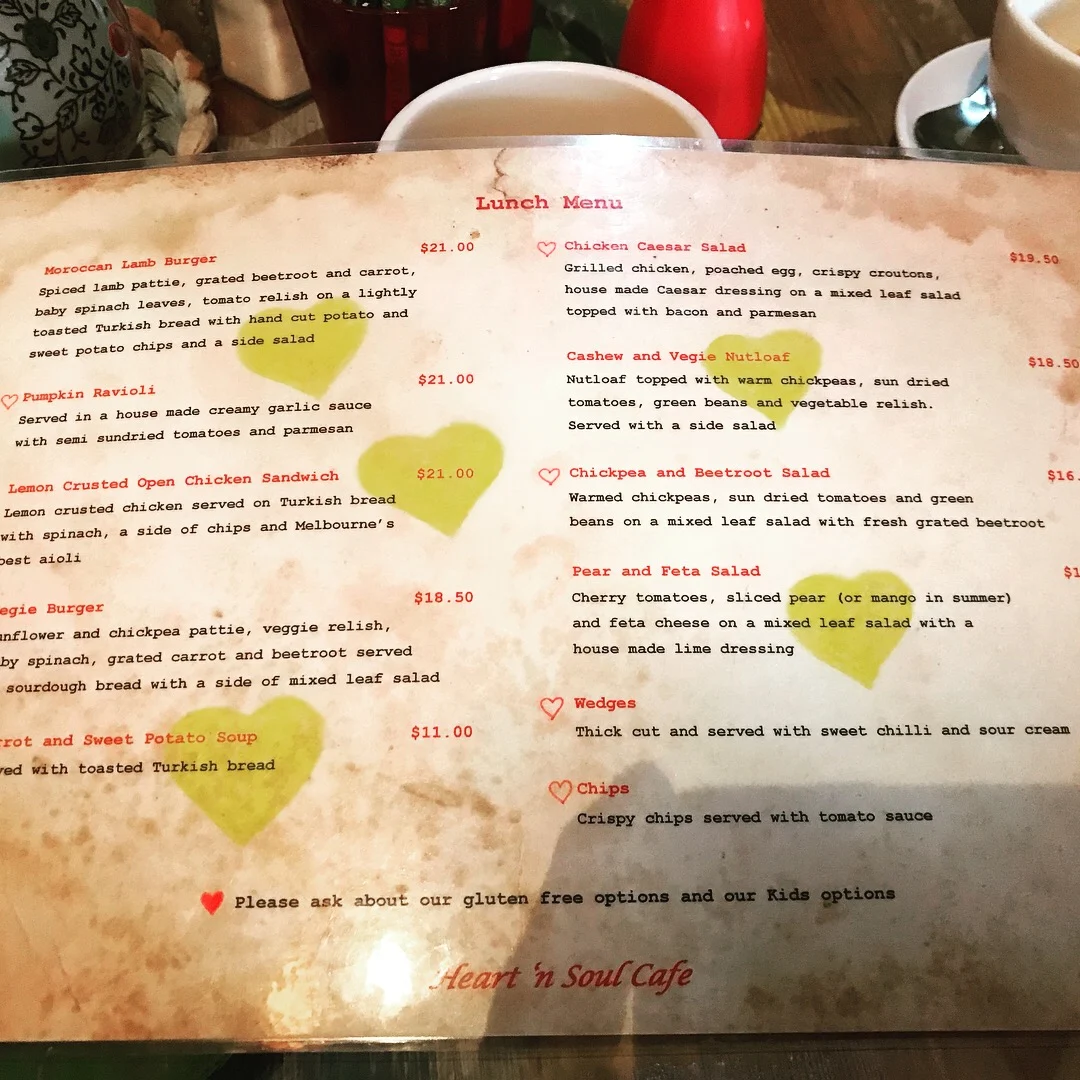 Lunch Menu
Moroccan Lamb Burger $21.00
Spiced lamb pattie, grated beetroot and carrot,
baby spinach leaves, tomato relish on a lightly
toasted Turkish bread with hand cut potato and
sweet potato chips and a side salad
Pumpkin Ravioli $21.00
Served in a house made creamy garlic sauce
with semi sundried tomatoes and parmesan
Lemon Crusted Open Chicken Sandwich $21.00
Lemon crusted chicken served on Turkish bread
with spinach, a side of chips and Melbourne's
best aioli
egie Burger $18.50
unflower and chickpea pattie, veggie relish,
by spinach, grated carrot and beetroot served
sourdough bread with a side of mixed leaf salad
rrot and Sweet Potato Soup $11.00
ved with toasted Turkish bread
Chicken Caesar Salad $19.50
Grilled chicken, poached egg, crispy croutons,
house made Caesar dressing on a mixed leaf salad
topped with bacon and parmesan
Cashew and Vegie Nutloaf $18.50
Nutloaf topped with warm chickpeas, sun dried
tomatoes, green beans and vegetable relish.
Served with a side salad
Chickpea and Beetroot Salad $16.
Warmed chickpeas, sun dried tomatoes and green
beans on a mixed leaf salad with fresh grated beetroot
Pear and Feta Salad $1
Cherry tomatoes, sliced pear (or mango in summer)
and feta cheese on a mixed leaf salad with a
house made lime dressing
Wedges
Thick cut and served with sweet chilli and sour cream
Chips
Crispy chips served with tomato sauce
Please ask about our gluten free options and our Kids options
Heart 'n Soul Cafe